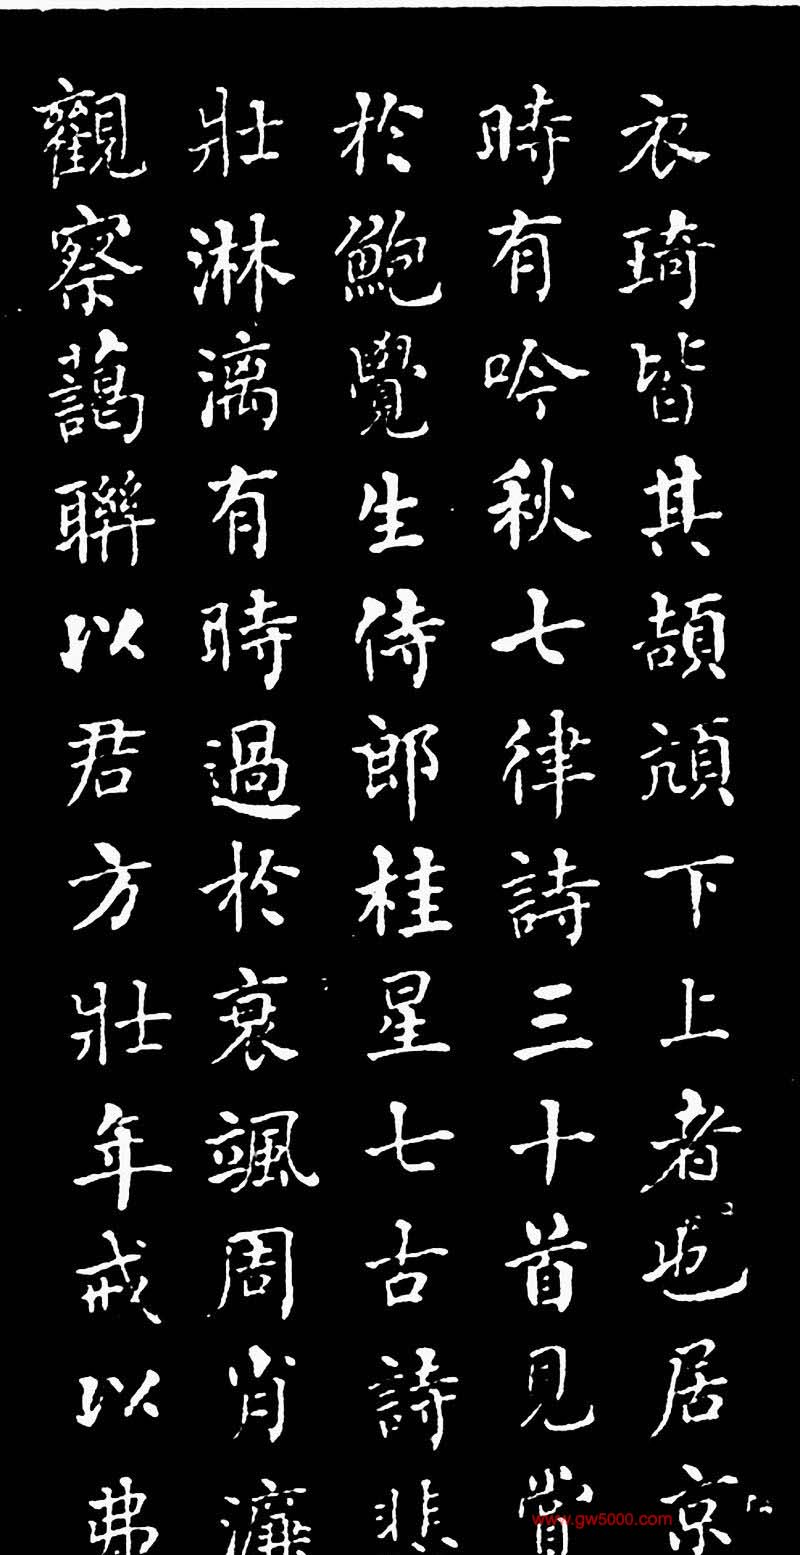 衣琦皆其頡頏下上者也居京
時有吟秋七律詩三十首見賞
於鮑覺生侍郎桂星七古詩悲
壯淋漓有時過於衰颯周肖濂
觀察藹聯以君方壯年戒以弗
www.gw5000.com